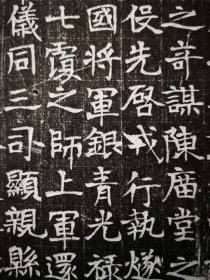 之竒謀陳廣堂之
役先啓戎行執燧
國將軍銀青光祿
七覆之師上軍還
儀同三司顯親縣